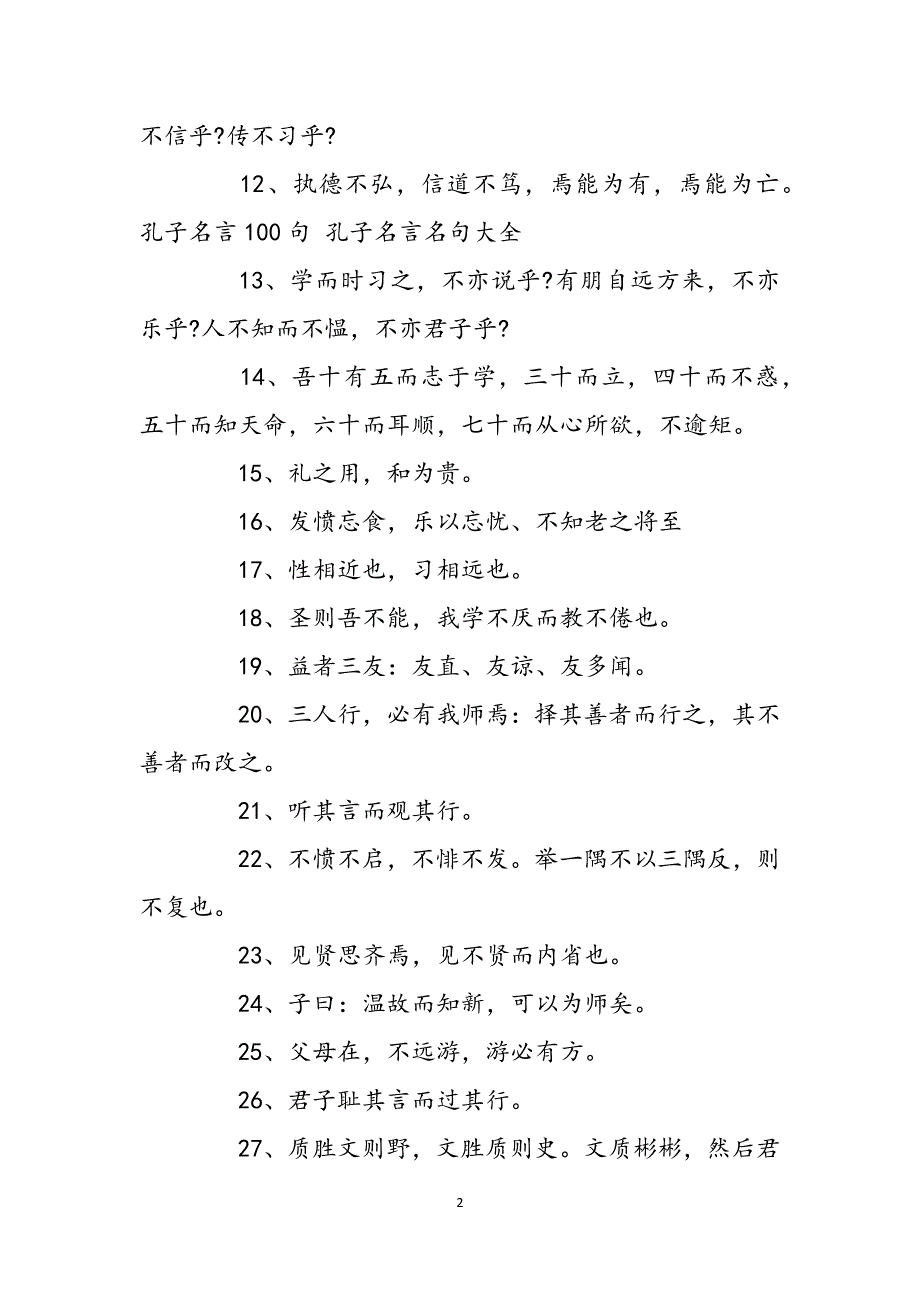 不信乎?传不习乎?
12、执德不弘，信道不笃，焉能为有，焉能为亡。
孔子名言100句 孔子名言名句大全
13、学而时习之，不亦说乎?有朋自远方来，不亦
乐乎?人不知而不愠，不亦君子乎?
14、吾十有五而志于学，三十而立，四十而不惑，
五十而知天命，六十而耳顺，七十而从心所欲，不逾矩。
15、礼之用，和为贵。
16、发愤忘食，乐以忘忧、不知老之将至
17、性相近也，习相远也。
18、圣则吾不能，我学不厌而教不倦也。
19、益者三友：友直、友谅、友多闻。
20、三人行，必有我师焉：择其善者而行之，其不
善者而改之。
21、听其言而观其行。
22、不愤不启，不悱不发。举一隅不以三隅反，则
不复也。
23、见贤思齐焉，见不贤而内省也。
24、子曰：温故而知新，可以为师矣。
25、父母在，不远游，游必有方。
26、君子耻其言而过其行。
27、质胜文则野，文胜质则史。文质彬彬，然后君
2